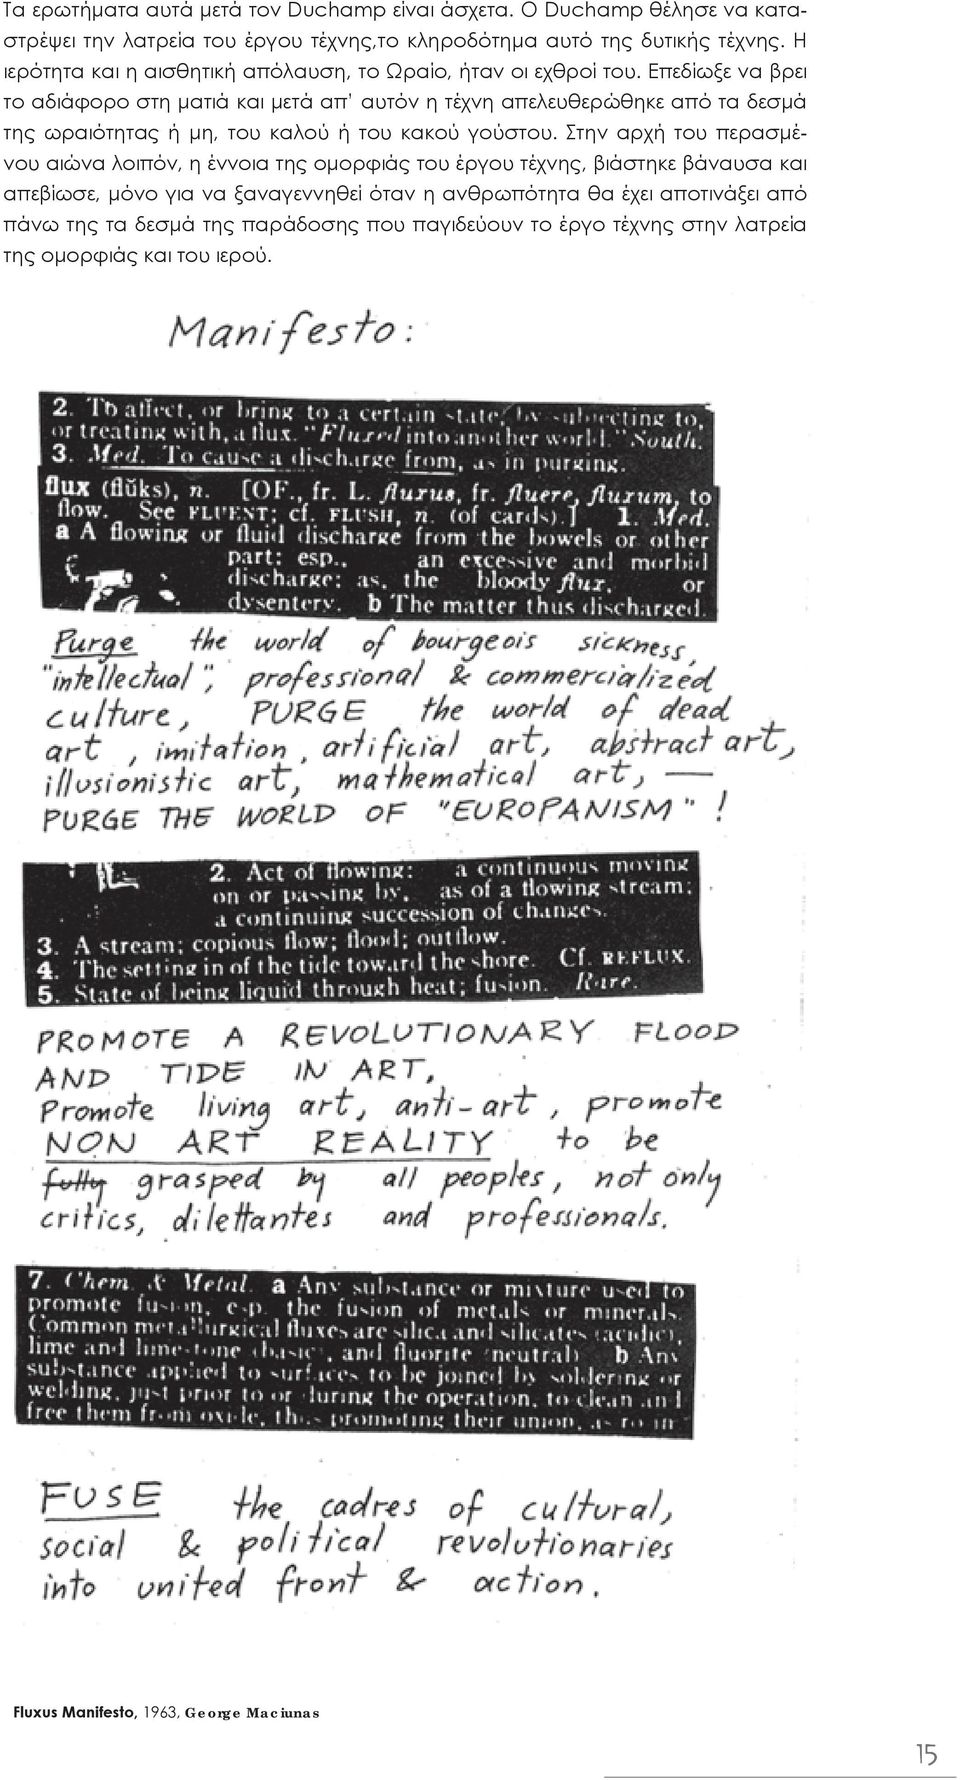 Τα ερωτήματα αυτά μετά τον Duchamp είναι άσχετα. Ο Duchamp θέλησε να κατα-
στρέψει την λατρεία του έργου τέχνης,το κληροδότημα αυτό της δυτικής τέχνης. Η
ιερότητα και η αισθητική απόλαυση, το Ωραίο, ήταν οι εχθροί του. Επεδίωξε να βρει
το αδιάφορο στη ματιά και μετά απ' αυτόν η τέχνη απελευθερώθηκε από τα δεσμά
της ωραιότητας ή μη, του καλού ή του κακού γούστου. Στην αρχή του περασμέ-
νου αιώνα λοιπόν, η έννοια της ομορφιάς του έργου τέχνης, βιάστηκε βάναυσα και
απεβίωσε, μόνο για να ξαναγεννηθεί όταν η ανθρωπότητα θα έχει αποτινάξει από
πάνω της τα δεσμά της παράδοσης που παγιδεύουν το έργο τέχνης στην λατρεία
της ομορφιάς και του ιερού.
Manifesto:
2. To affect, or bring to a certain state, by subjecting to,
or treating with, a flux. "Fluxed into another world." South.
3. Med. To cause a discharge from, as in purging.
flux (flŭks), n. [OF., fr. L. fluxus, fr. fluere, fluxum, to
flow. See FLUENT; cf. FLUSH, n. (of cards).] 1. Med.
a A flowing or fluid discharge from the bowels or other
part: esp., an excessive and morbid
discharge: as, the bloody flux, or
dysentery. b The matter thus discharged.
Purge the world of bourgeois sickness,
"intellectual", professional & commercialized
culture, PURGE the world of dead
art, imitation, artificial art, abstract art,
illusionistic art, mathematical art, —
PURGE THE WORLD OF "EUROPANISM"!
2. Act of flowing: a continuous moving
on or passing by, as of a flowing stream;
a continuing succession of changes.
3. A stream; copious flow; flood; outflow.
4. The setting in of the tide toward the shore. Cf. REFLUX.
5. State of being liquid through heat; fusion. Rare.
PROMOTE A REVOLUTIONARY FLOOD
AND TIDE IN ART,
Promote living art, anti-art, promote
NON ART REALITY to be
fully grasped by all peoples, not only
critics, dilettantes and professionals.
7. Chem. & Metal. a Any substance or mixture used to
promote fusion, esp. the fusion of metals or minerals.
Common metallurgical fluxes are silica and silicates (acidic),
lime and limestone (basic), and fluorite (neutral) b Any
substance applied to surfaces to be joined by soldering or
welding, just prior to or during the operation, to clean and
free them from oxide, thus promoting their union, as rosin
FUSE the cadres of cultural,
social & political revolutionaries
into united front & action.
Fluxus Manifesto, 1963, George Maciunas
15